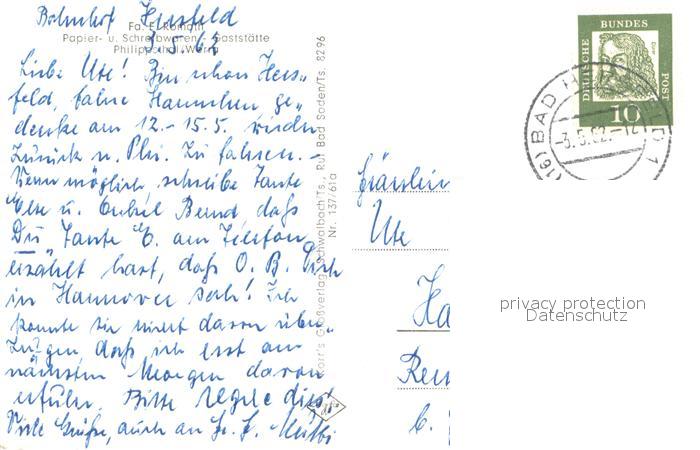 Bahnhof Hersfeld
Fa. E. Romath
3.5.62
Papier- u. Schreibwaren - Gaststätte
Philippsthal-Werra
Liebe Ute! Bin schon Hers-
feld, fahre Hannchen ge-
denke am 12.-15.5. wieder
zurück n. Phi. zu fahren. -
Wenn möglich, schreibe Tante
Else u. Onkel Bernd, daß
Du Tante E. am Telefon
erzählt hast, daß O. B. Dich
in Hannover sah! Ich
konnte sie nicht davon über-
zeugen, daß ich erst am
nächsten Morgen davon
erfuhr. Bitte regele dies!
Viele Grüße, auch an
Schwalbach/Ts., Ruf Bad Soden/Ts. 8296
Nr. 137/61a
Fräulein
Ute
Ha
C.
DEUTSCHE
BUNDES
POST
Dürer
10
(16) BAD HERSFELD 1
-3.5.62.-12
privacy protection
Datenschutz